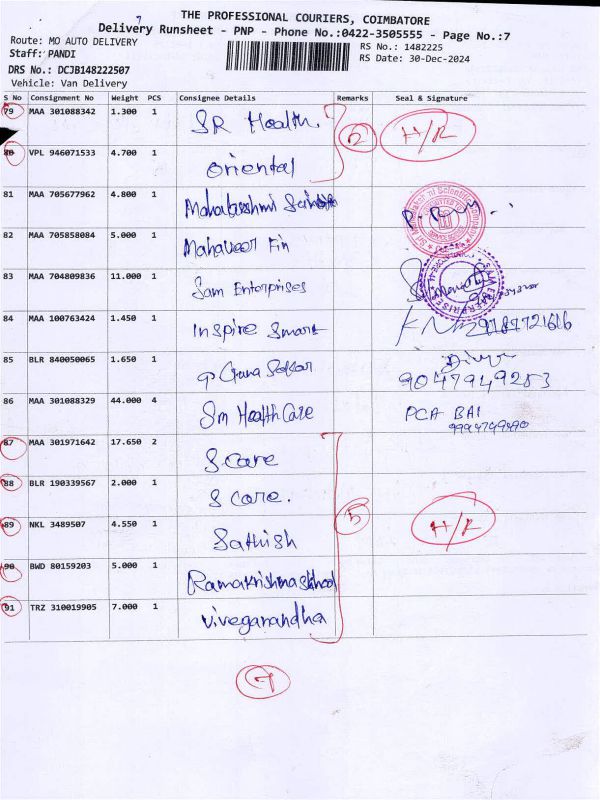 THE PROFESSIONAL COURIERS, COIMBATORE
Delivery Runsheet - PNP - Phone No.:0422-3505555 - Page No.:7
7
Route: MO AUTO DELIVERY
RS No.: 1482225
Staff: PANDI
RS Date: 30-Dec-2024
DRS No.: DCJB148222507
Vehicle: Van Delivery
S No Consignment No Weight PCS Consignee Details Remarks Seal & Signature
79 MAA 301088342 1.300 1 SR Health. 2 H/R
80 VPL 946071533 4.700 1 Oriental
81 MAA 705677962 4.800 1 Mahalakshmi
82 MAA 705858084 5.000 1 Mahaveer Fin
83 MAA 704809836 11.000 1 Sam Enterprises
84 MAA 100763424 1.450 1 Inspire Smart
85 BLR 840050065 1.650 1 9047949253
86 MAA 301088329 44.000 4 Sm HealthCare PCA BAI
87 MAA 301971642 17.650 2 S care
88 BLR 190339567 2.000 1 S care.
89 NKL 3489507 4.550 1 Sathish 5 H/R
90 BWD 80159203 5.000 1 Ramakrishna
91 TRZ 310019905 7.000 1 Viveganandha
7